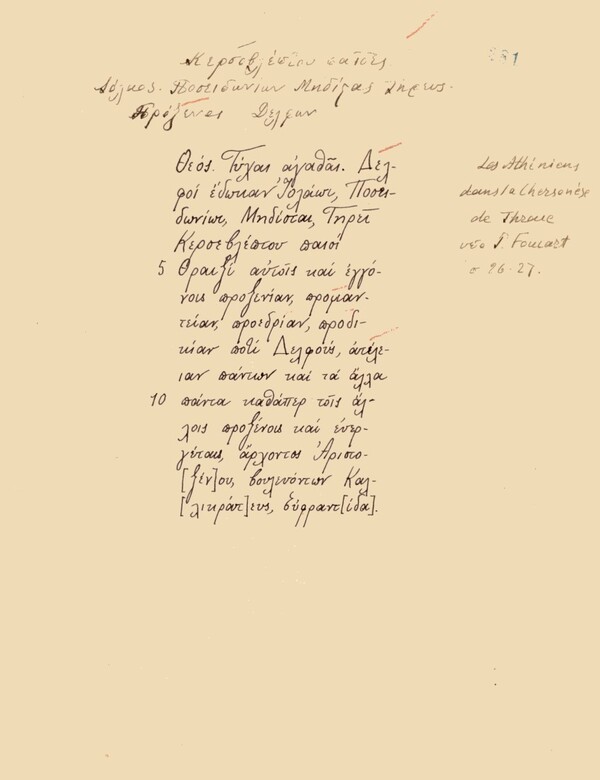 Κερσεβλέπτου παῖδες 381
Ἰόλαος. Ποσειδωνίων Μηδίστας Τήρης.
Πρόξενος Δελφῶν
Θεός. Τύχαι ἀγαθᾶι. Δελ-
φοί ἔδωκαν Ἰολάωι, Ποσει-
δωνίωι, Μηδίσται, Τηρεῖ
Κερσεβλέπτου παισί
5 Θραιξί αὐτοῖς καί ἐγγό-
νοις προξενίαν, προμαν-
τείαν, προεδρίαν, προδι-
κίαν ποτί Δελφούς, ἀτέλε-
ιαν πάντων καί τά ἄλλα
10 πάντα καθάπερ τοῖς ἄλ-
λοις προξένοις καί εὐερ-
γέταις, ἄρχοντος Ἀριστο-
[ξέν]ου, βουλευόντων Καλ-
[λικράτ]ευς, Εὐφραντ[ίδα].
Les Athéniens
dans la Chersonèse
de Thrace
νπο P. Foucart
σ 26-27.